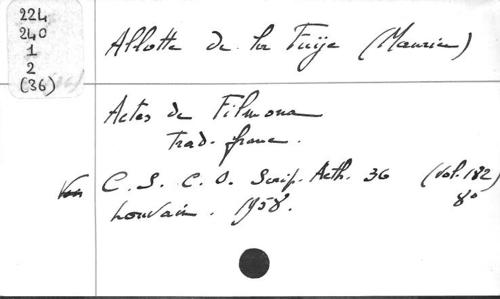 224
240
1
2
(36)
Allotte de la Fuÿe (Maurice)
Actes de Filmona
Trad. franc.
C. S. C. O. Scrip. Aeth. 36 (Vol. 182)
Louvain. 1958. 8°